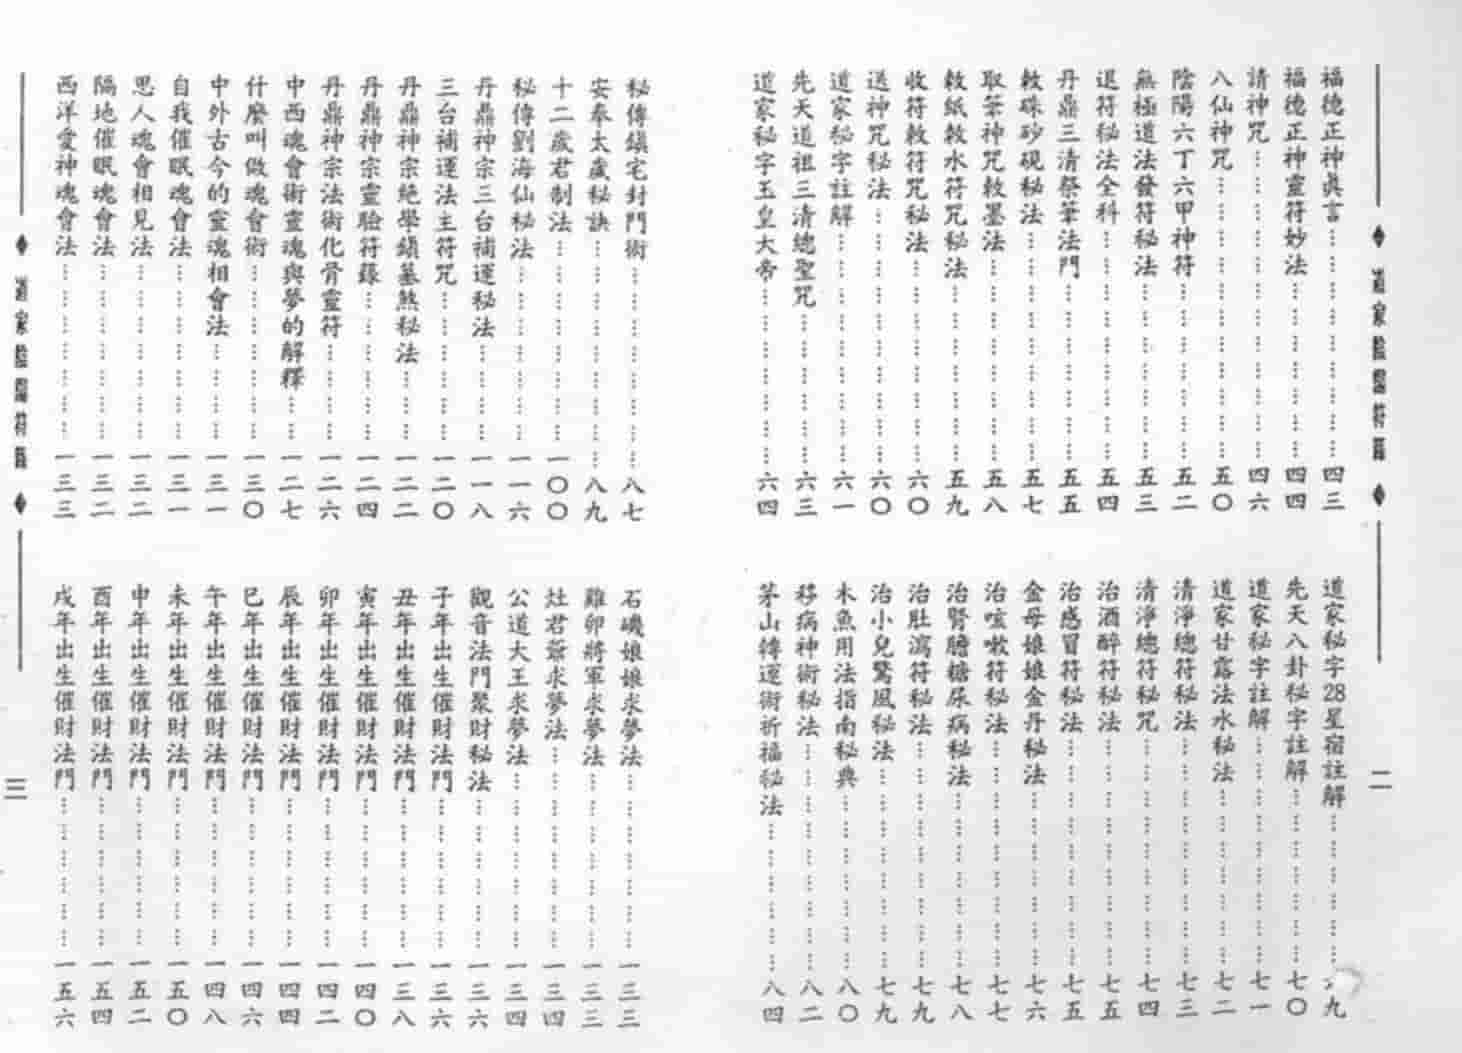 道家陰陽符籙
二
福德正神眞言……四三
福德正神靈符妙法……四四
請神咒……四六
八仙神咒……五〇
陰陽六丁六甲神符……五二
無極道法發符秘法……五三
退符秘法全科……五四
丹鼎三清祭筆法門……五五
敕硃砂硯秘法……五七
取筆神咒敕墨法……五八
敕紙敕水符咒秘法……五九
收符敕符咒秘法……六〇
送神咒秘法……六〇
道家秘字註解……六一
先天道祖三清總聖咒……六三
道家秘字玉皇大帝……六四
道家秘字28星宿註解……九
先天八卦秘字註解……七〇
道家秘字註解……七一
道家甘露法水秘法……七二
清淨總符秘法……七三
清淨總符秘咒……七四
治酒醉符秘法……七五
治感冒符秘法……七五
金母娘娘金丹秘法……七六
治咳嗽符秘法……七七
治腎膽糖尿病秘法……七八
治肚瀉符秘法……七九
治小兒驚風秘法……七九
木魚用法指南秘典……八〇
移病神術秘法……八二
茅山轉運術祈福秘法……八四
秘傳鎮宅封門術……八七
安奉太歲秘訣……八九
十二歲君制法……一〇〇
秘傳劉海仙秘法……一一六
丹鼎神宗三台補運秘法……一一八
三台補運法主符咒……一二〇
丹鼎神宗絕學鎮墓煞秘法……一二二
丹鼎神宗靈胎符籙……一二四
丹鼎神宗法術化骨靈符……一二六
中西魂會術靈魂與夢的解釋……一二七
什麼叫做魂會術……一三〇
中外古今的靈魂相會法……一三一
自我催眠魂會法……一三一
思人魂會相見法……一三二
隔地催眠魂會法……一三二
西洋愛神魂會法……一三三
石磯娘娘求夢法……一三三
雞卵將軍求夢法……一三三
灶君爺求夢法……一三四
公道大王求夢法……一三四
觀音法門聚財秘法……一三六
子年出生催財法門……一三六
丑年出生催財法門……一三八
寅年出生催財法門……一四〇
卯年出生催財法門……一四二
辰年出生催財法門……一四四
巳年出生催財法門……一四六
午年出生催財法門……一四八
未年出生催財法門……一五〇
申年出生催財法門……一五二
酉年出生催財法門……一五四
戌年出生催財法門……一五六
道家陰陽符籙
三